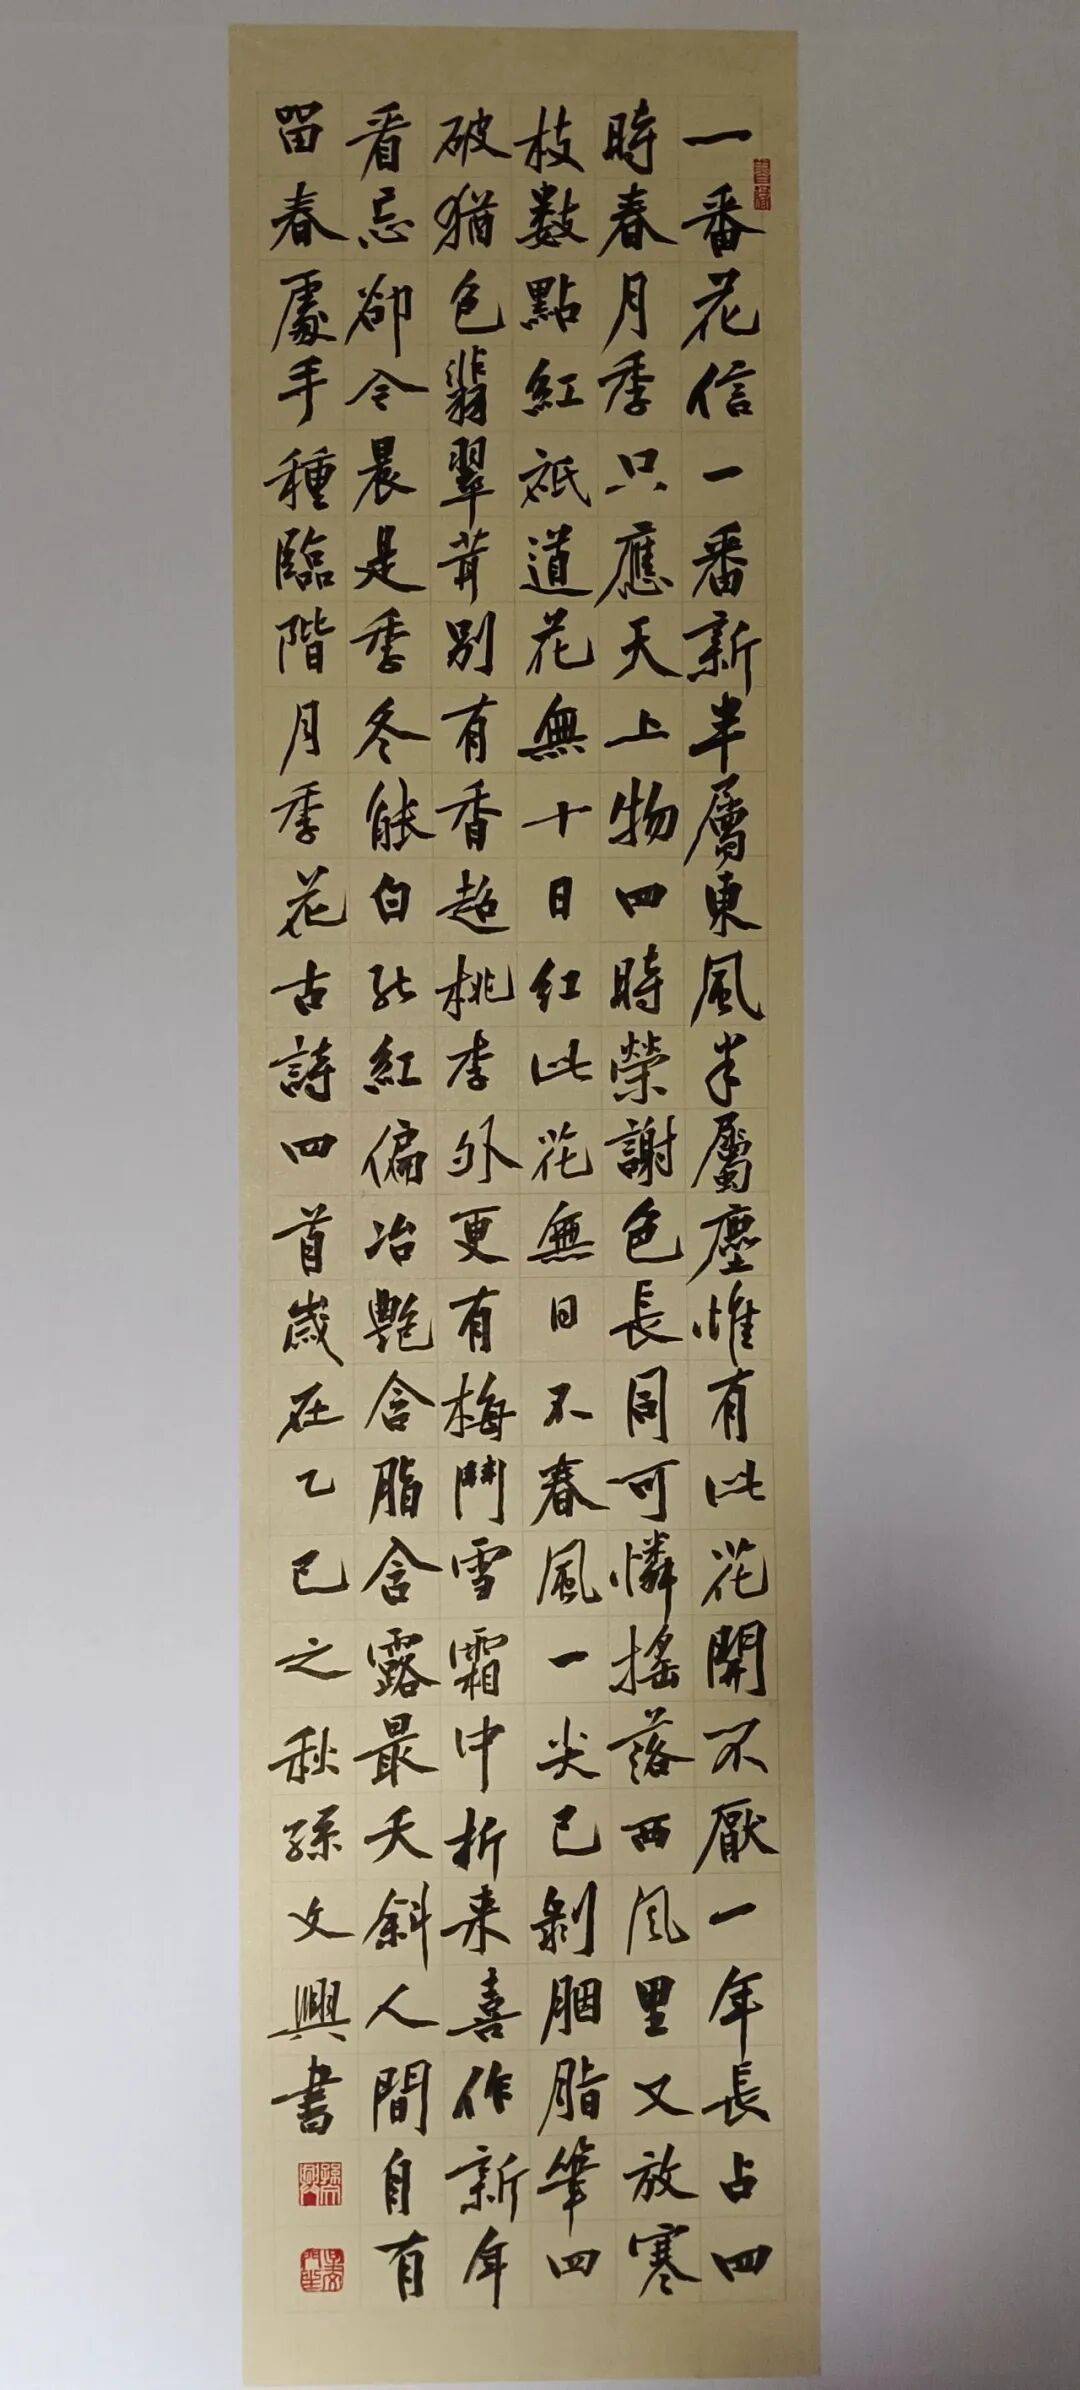 一番花信一番新半屬東風半屬塵惟有此花開不厭一年長占四
時春月季只應天上物四時榮謝色長同可憐搖落西風里又放寒
枝數點紅祇道花無十日紅此花無日不春風一尖已剝胭脂筆四
破猶色翡翠茸別有香超桃李外更有梅鬥雪霜中折来喜作新年
看忌卻今晨是季冬能白能紅偏冶艷含脂含露最夭斜人間自有
留春處手種臨階月季花古詩四首歲在乙巳之秋孫文興書